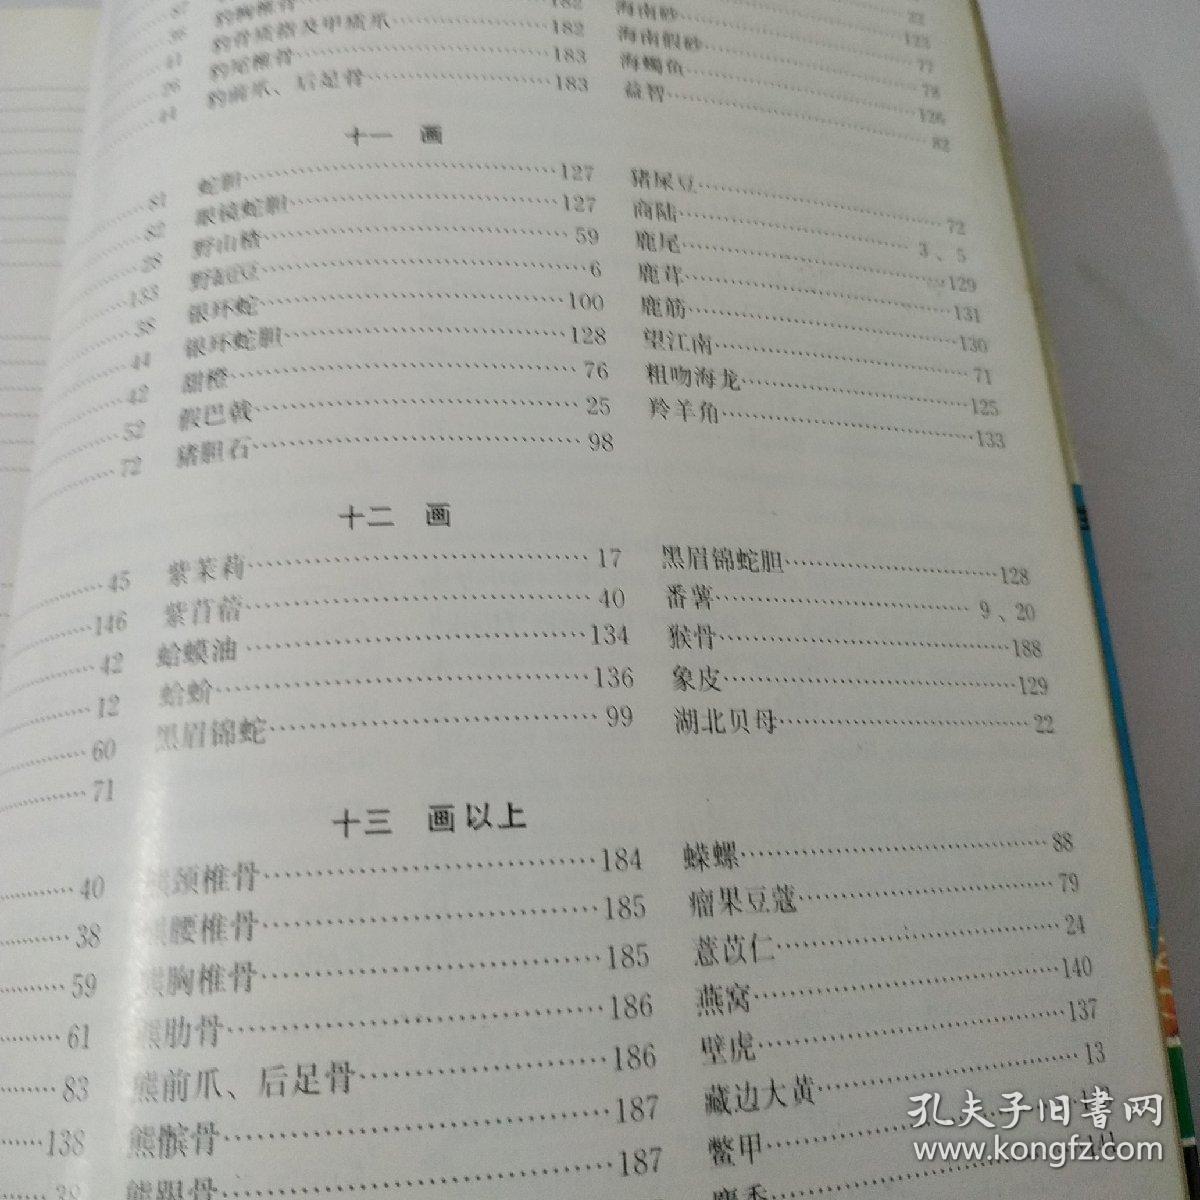 豹胸椎骨……182
豹骨质指及甲质爪……182
豹尾椎骨……183
豹前爪、后足骨……183
海南砂……123
海南假砂……77
海蠋鱼……126
益智……82
十一 画
蛇胆……127
眼镜蛇胆……127
野山楂……59
野豇豆……6
银环蛇……100
银环蛇胆……128
甜橙……76
假巴戟……25
猪胆石……98
猪屎豆……72
商陆……3、5
鹿尾……129
鹿茸……131
鹿筋……130
望江南……71
粗吻海龙……125
羚羊角……133
十二 画
紫茉莉……17
紫苜蓿……40
蛤蟆油……134
蛤蚧……136
黑眉锦蛇……99
黑眉锦蛇胆……128
番薯……9、20
猴骨……188
象皮……129
湖北贝母……22
十三 画以上
熊颈椎骨……184
熊腰椎骨……185
熊胸椎骨……185
熊肋骨……186
熊前爪、后足骨……186
熊髌骨……187
熊跟骨……187
蝾螺……88
瘤果豆蔻……79
薏苡仁……24
燕窝……140
壁虎……137
藏边大黄……13
鳖甲
麝香
87
41
26
44
81
82
28
133
38
44
42
52
72
45
146
42
12
60
71
40
38
59
61
83
138
38
孔夫子旧书网
www.kongfz.com